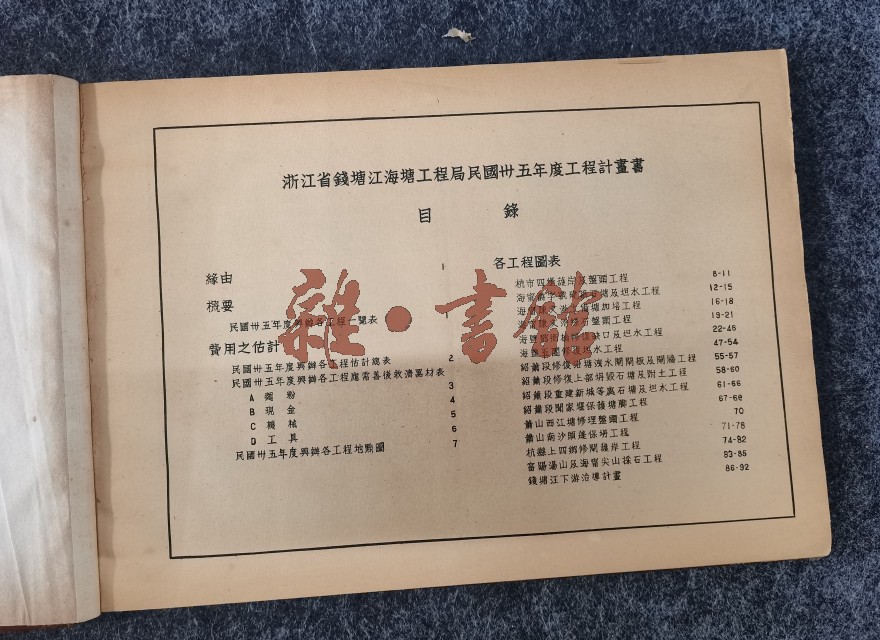 浙江省錢塘江海塘工程局民國卅五年度工程計畫書
目錄
緣由 1
概要
民國卅五年度興辦各工程一覽表
費用之估計
民國卅五年度興辦各工程估計總表 2
民國卅五年度興辦各工程應需善後救濟器材表
A 麵粉 3
B 現金 4
C 機械 5
D 工具 6
民國卅五年度興辦各工程地點圖 7
各工程圖表
杭市四 護岸及盤頭工程 8-11
海甯 石塘及坦水工程 12-15
海甯陳文港 塘加培工程 16-18
海甯陳文港修 石盤頭工程 19-21
海鹽 缺口及坦水工程 22-46
海鹽 坦水工程 47-54
紹蕭段修復沿塘洩水閘閘板及閘隄工程 55-57
紹蕭段修復上部坍毀石塘及附土工程 58-60
紹蕭段重建新城等處石塘及坦水工程 61-66
紹蕭段聞家堰保護塘腳工程 67-69
蕭山西江塘修理盤頭工程 70
蕭山南沙頭蓬保坍工程 71-78
杭縣上四鄉修閘護岸工程 74-82
富陽湯山及海甯尖山採石工程 83-85
錢塘江下游治導計畫 86-92
雜·書館